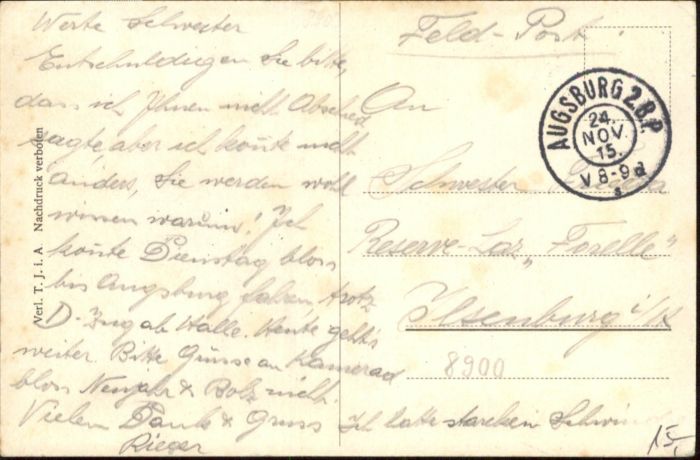 Werte Schwester
Entschuldigen Sie bitte,
dass ich Ihnen nicht Abschied
sagte, aber ich konte nicht
anders, Sie werden wohl
wissen warum! Ich
konte Dienstag bloss
bis Augsburg fahren trotz
D-Zug ab Halle. Heute geht's
weiter. Bitte Grüsse an Kamerad
bloss Neujahr & Bolz nicht.
Vielen Dank & Gruss
Rieger
Ich hatte starken
Verl. T. J. i. A Nachdruck verboten
Feld-Post
An
Schwester
Reserve-Laz „Forelle"
Ilsenburg i/H
8900
AUGSBURG 2.B.P.
24.
NOV.
15.
V 8-9
15,-